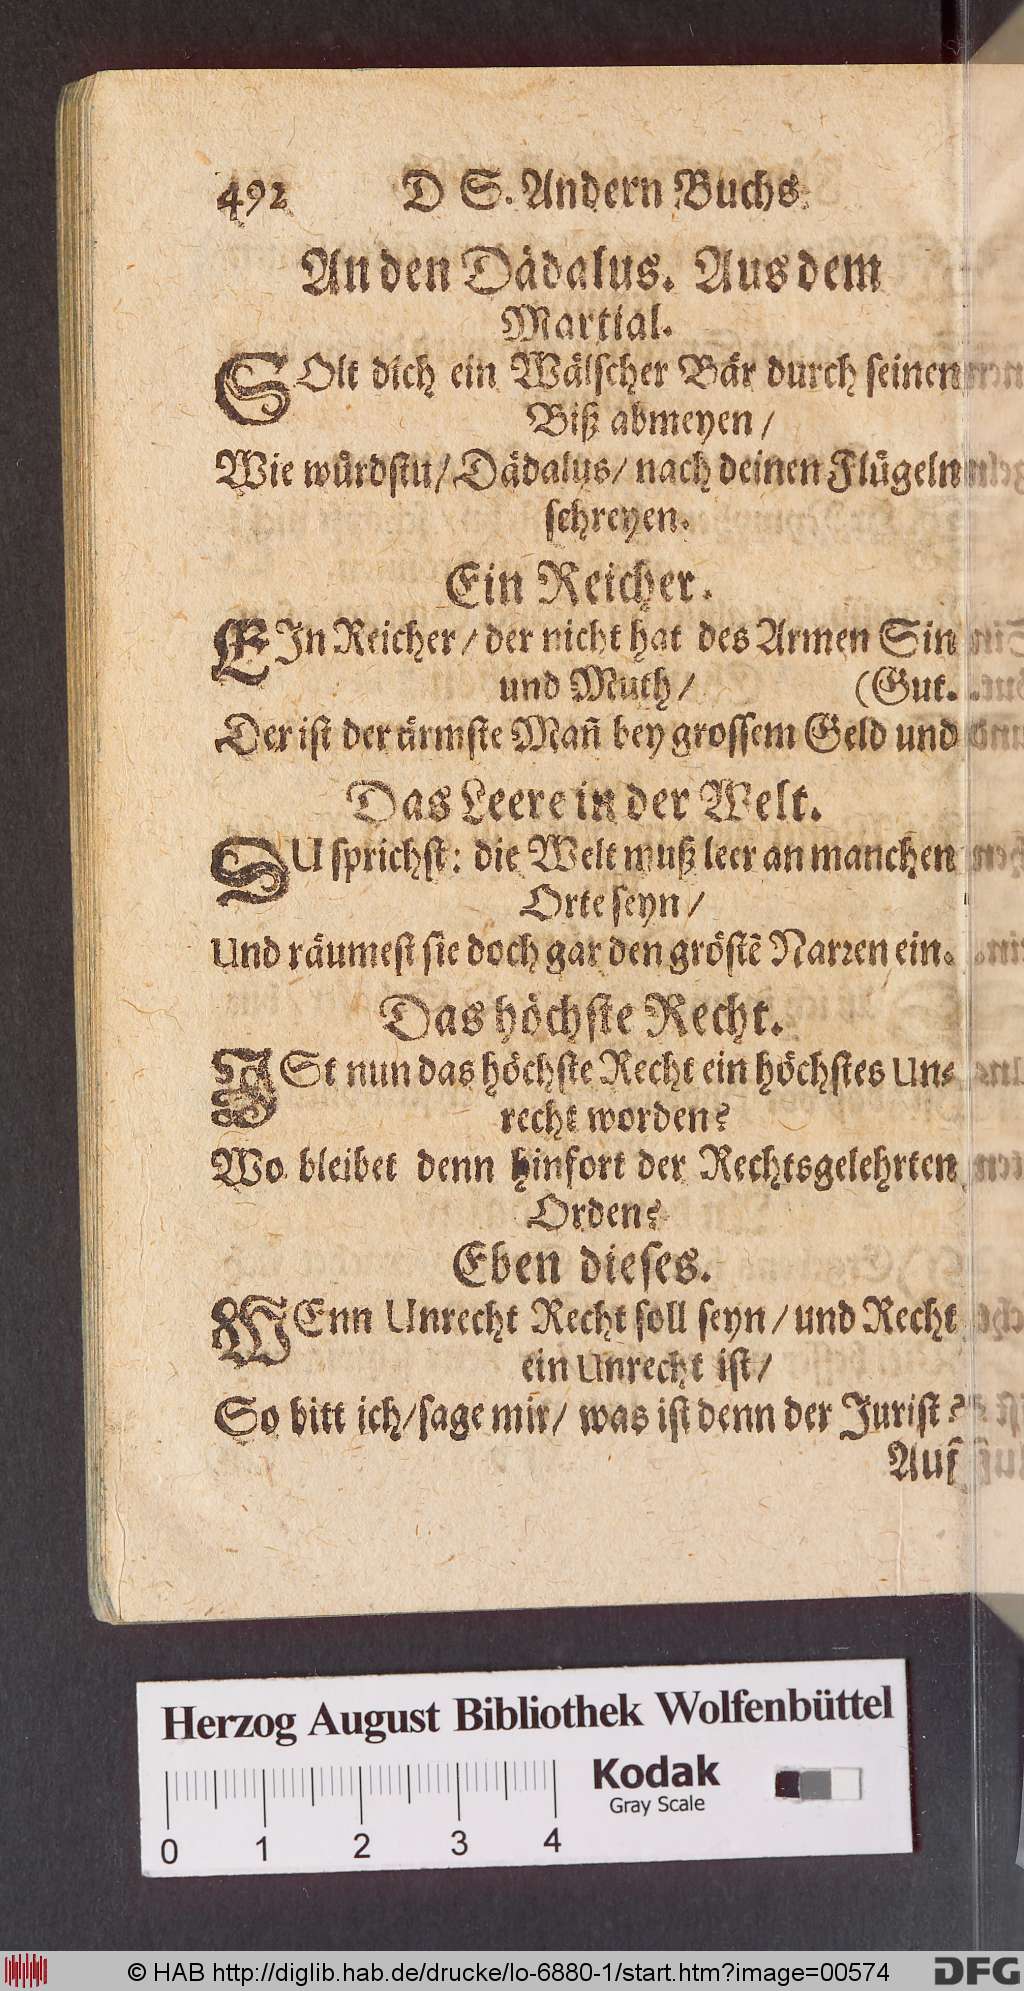 492 D S. Andern Buchs
An den Dädalus. Aus dem
Martial.
SOlt dich ein Wälscher Bär durch seinen
Biß abmeyen /
Wie würdstu / Dädalus / nach deinen Flügeln
schreyen.
Ein Reicher.
EIn Reicher / der nicht hat des Armen Sin
und Muth / (Gut.
Der ist der ärmste Mañ bey grossem Geld und
Das Leere in der Welt.
DU sprichst: die Welt muß leer an manchen
Orte seyn /
Und räumest sie doch gar den gröstẽ Narꝛen ein.
Das höchste Recht.
ISt nun das höchste Recht ein höchstes Un-
recht worden?
Wo bleibet denn hinfort der Rechtsgelehrten
Orden?
Eben dieses.
WEnn Unrecht Recht soll seyn / und Recht
ein Unrecht ist /
So bitt ich / sage mir / was ist denn der Jurist?
Auf
Herzog August Bibliothek Wolfenbüttel
Kodak
Gray Scale
0 1 2 3 4
© HAB http://diglib.hab.de/drucke/lo-6880-1/start.htm?image=00574
DFG